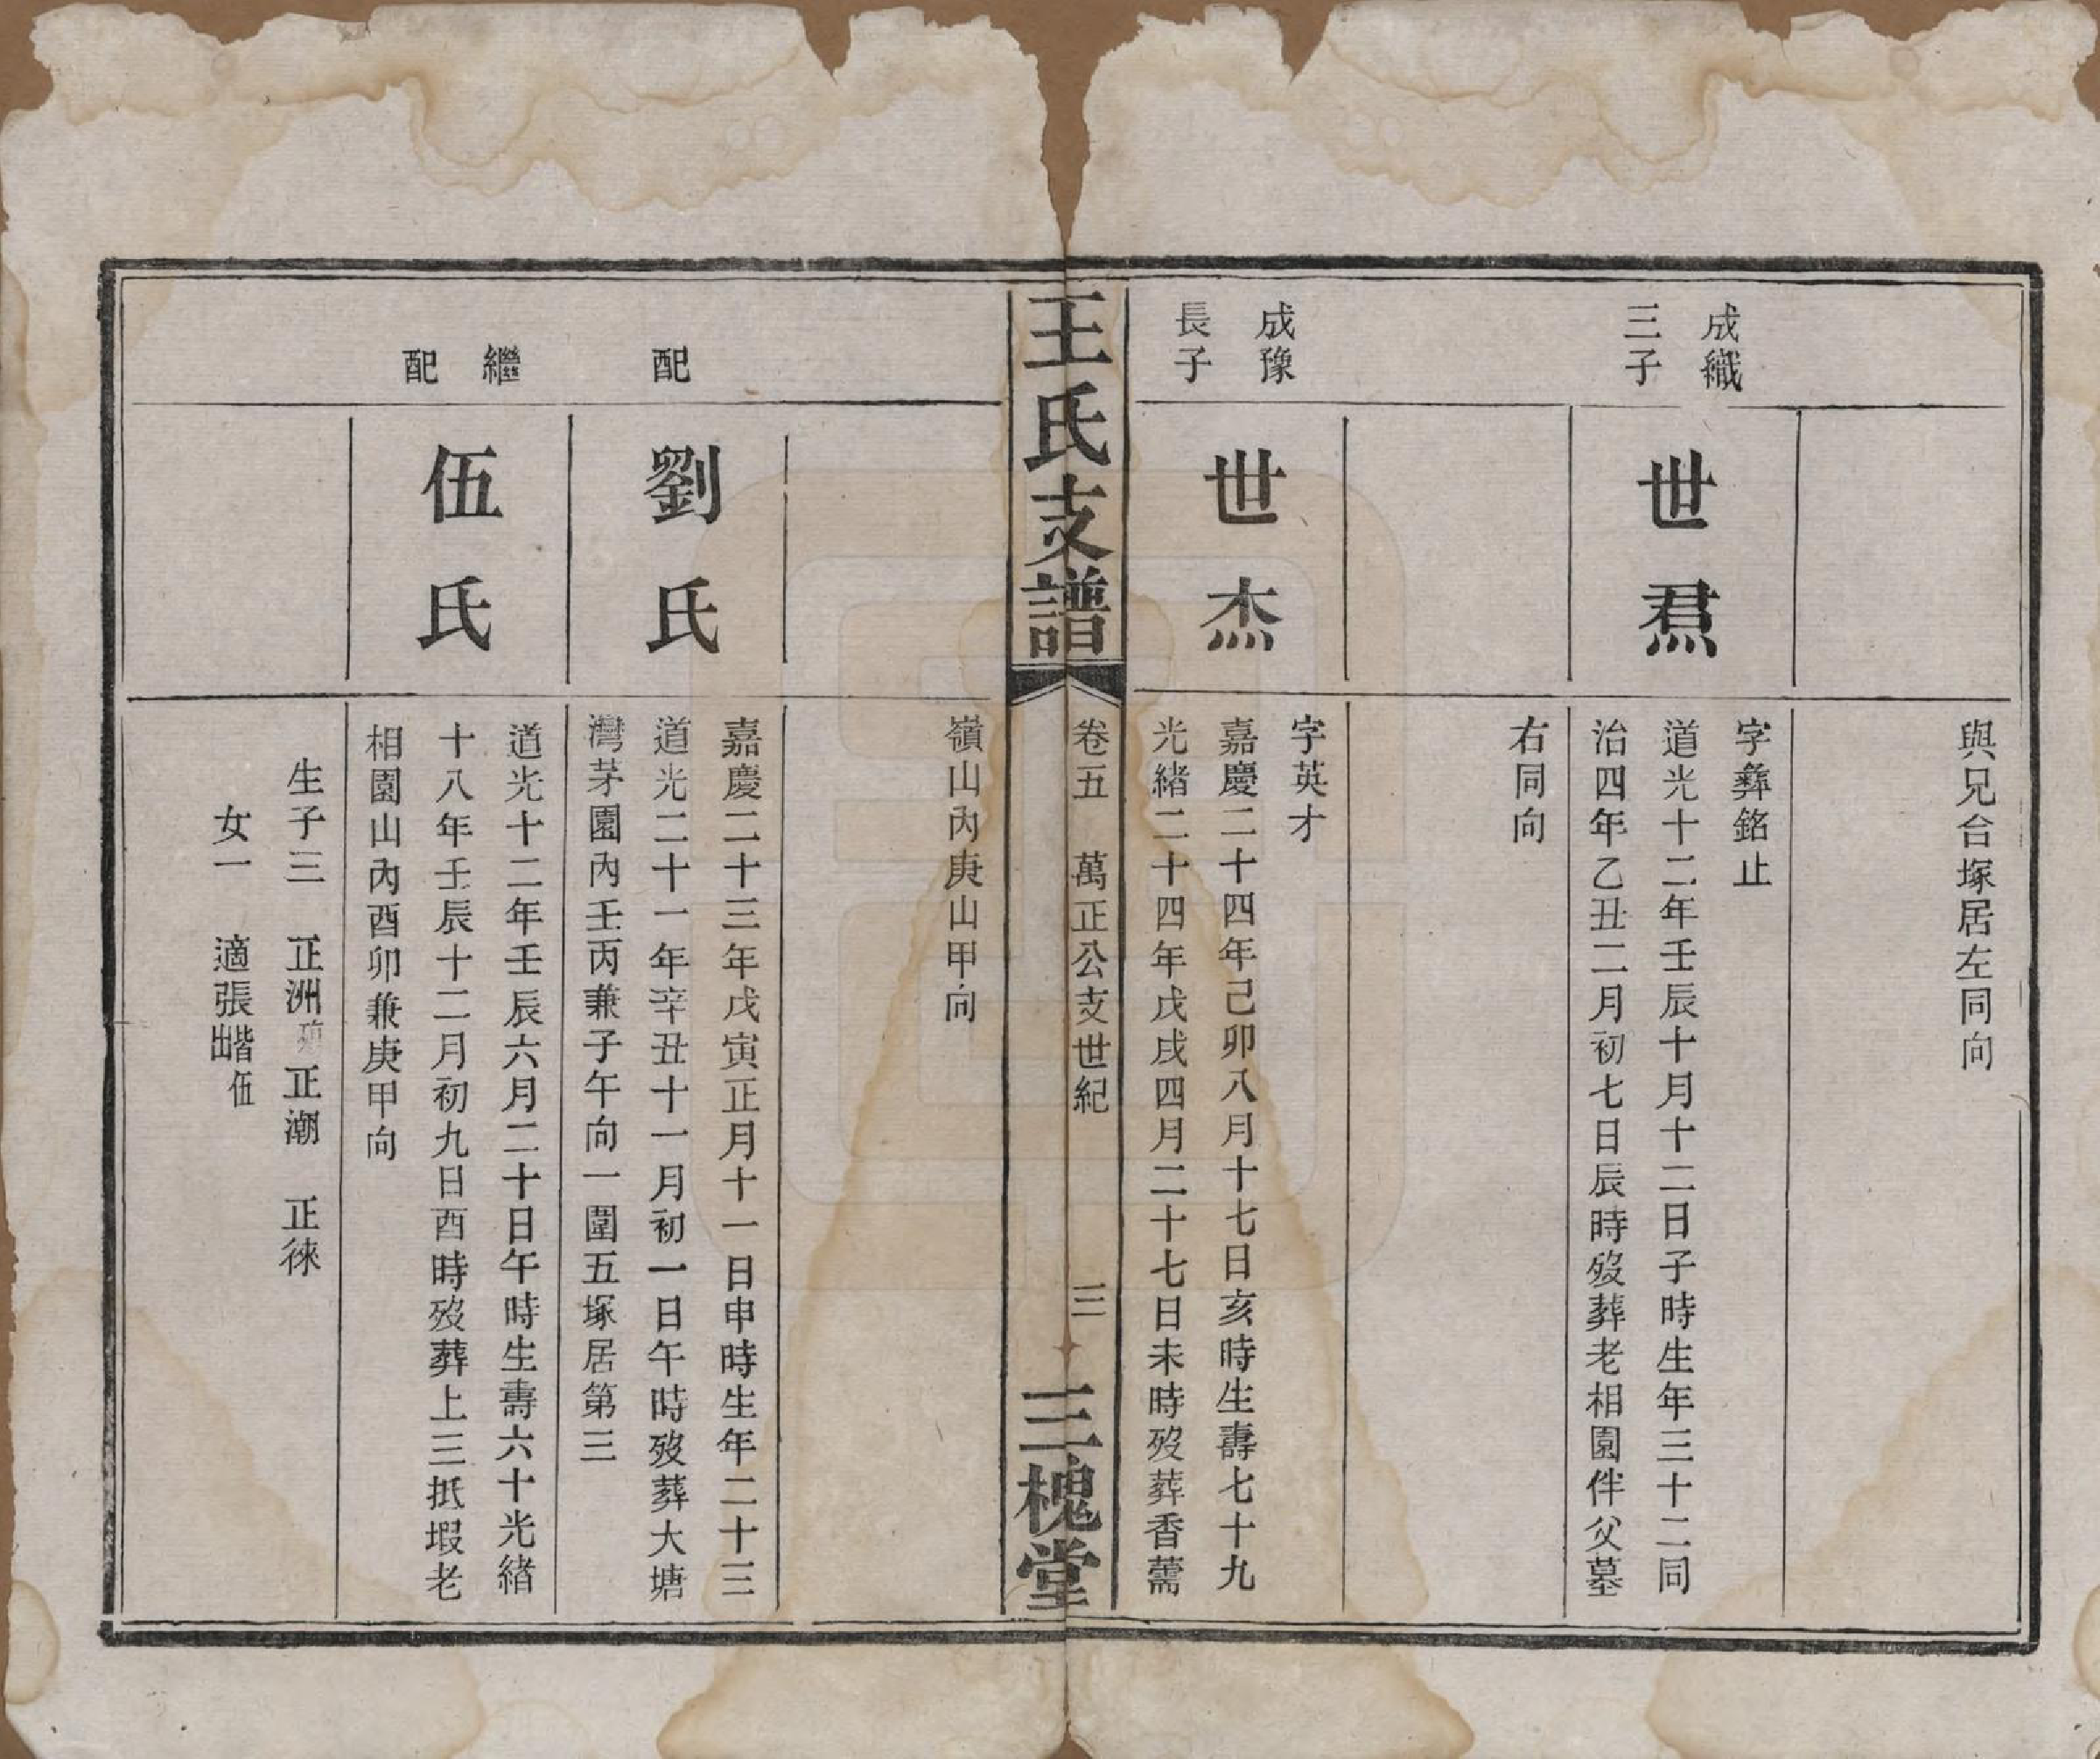 與兄合塚居左同向
成織
三子
世焄
字彝銘止
道光十二年壬辰十月十二日子時生年三十二同
治四年乙丑二月初七日辰時歿葬老相園伴父墓
右同向
成豫
長子
世杰
字英才
嘉慶二十四年己卯八月十七日亥時生壽七十九
光緒二十四年戊戌四月二十七日未時歿葬香薷
王氏支譜
卷五 萬正公支世紀 三
三槐堂
嶺山內庚山甲向
配
劉氏
嘉慶二十三年戊寅正月十一日申時生年二十三
道光二十一年辛丑十一月初一日午時歿葬大塘
灣茅園內壬丙兼子午向一圍五塚居第三
繼
配
伍氏
道光十二年壬辰六月二十日午時生壽六十光緒
十八年壬辰十二月初九日酉時歿葬上三抵塅老
相園山內酉卯兼庚甲向
生子三 正洲 正潮 正徠
女一 適張 伍出